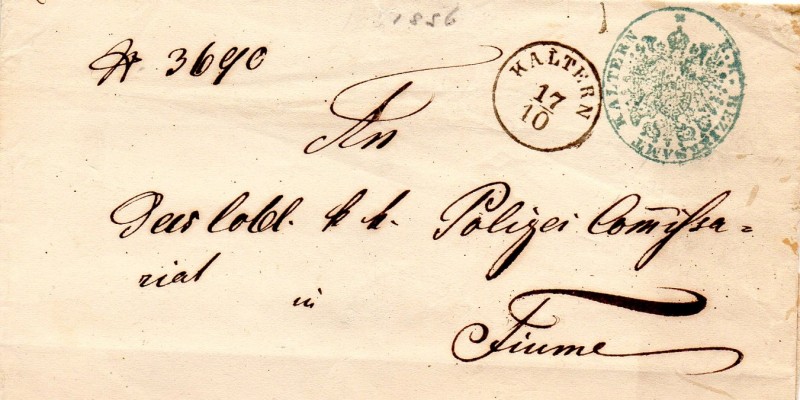 1856
№ 3690
KALTERN
17
10
K.K. BEZIRKSAMT KALTERN
An
Das lobl. k k. Polizei Com̄issa=
riat
in
Fiume